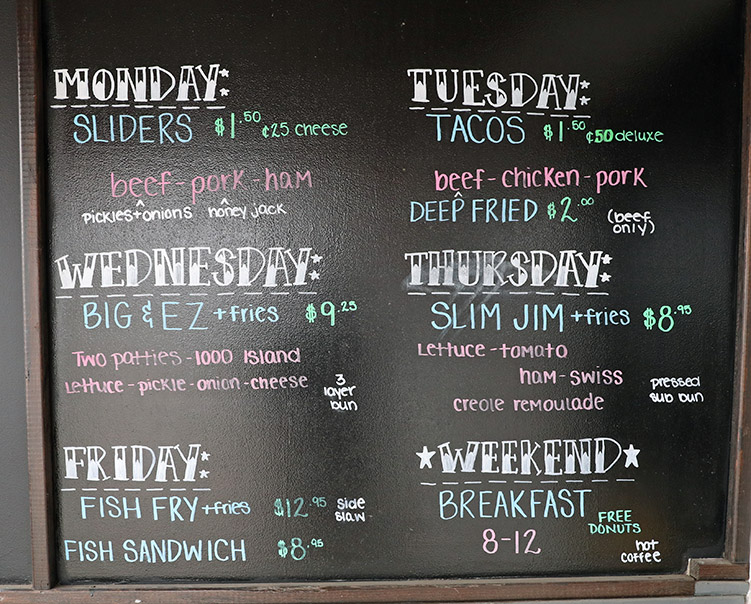 MONDAY:
SLIDERS $1.50 ¢25 cheese
beef - pork - ham
pickles + onions honey jack
TUESDAY:
TACOS $1.50 ¢50 deluxe
beef - chicken - pork
DEEP FRIED $2.00 (beef only)
WEDNESDAY:
BIG & EZ + fries $9.25
Two patties - 1000 Island
Lettuce - pickle - onion - cheese
3 layer bun
THURSDAY:
SLIM JIM + fries $8.95
Lettuce - tomato
ham - swiss
creole remoulade
pressed sub bun
FRIDAY:
FISH FRY + fries $12.95 side slaw
FISH SANDWICH $8.95
★WEEKEND★
BREAKFAST
8-12
FREE DONUTS
hot coffee